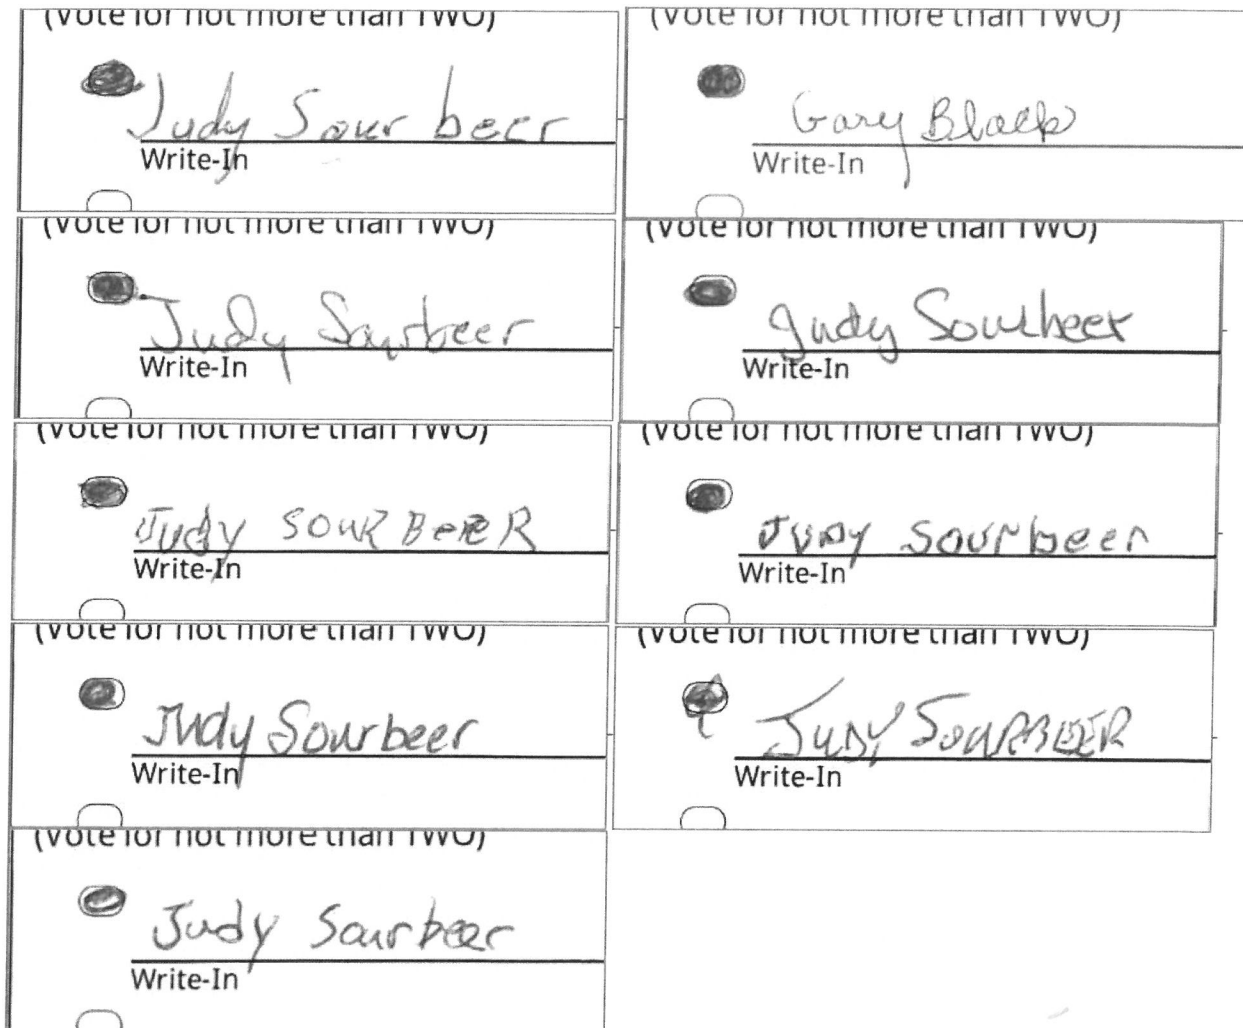 (Vote for not more than TWO)
Judy Sour beer
Write-In
(Vote for not more than TWO)
Gary Black
Write-In
(Vote for not more than TWO)
Judy Sourbeer
Write-In
(Vote for not more than TWO)
Judy Sourbeer
Write-In
(Vote for not more than TWO)
Judy SOUR BeeR
Write-In
(Vote for not more than TWO)
JUDY Sourbeer
Write-In
(Vote for not more than TWO)
Judy Sourbeer
Write-In
(Vote for not more than TWO)
JUDY SOURBEER
Write-In
(Vote for not more than TWO)
Judy Sourbeer
Write-In